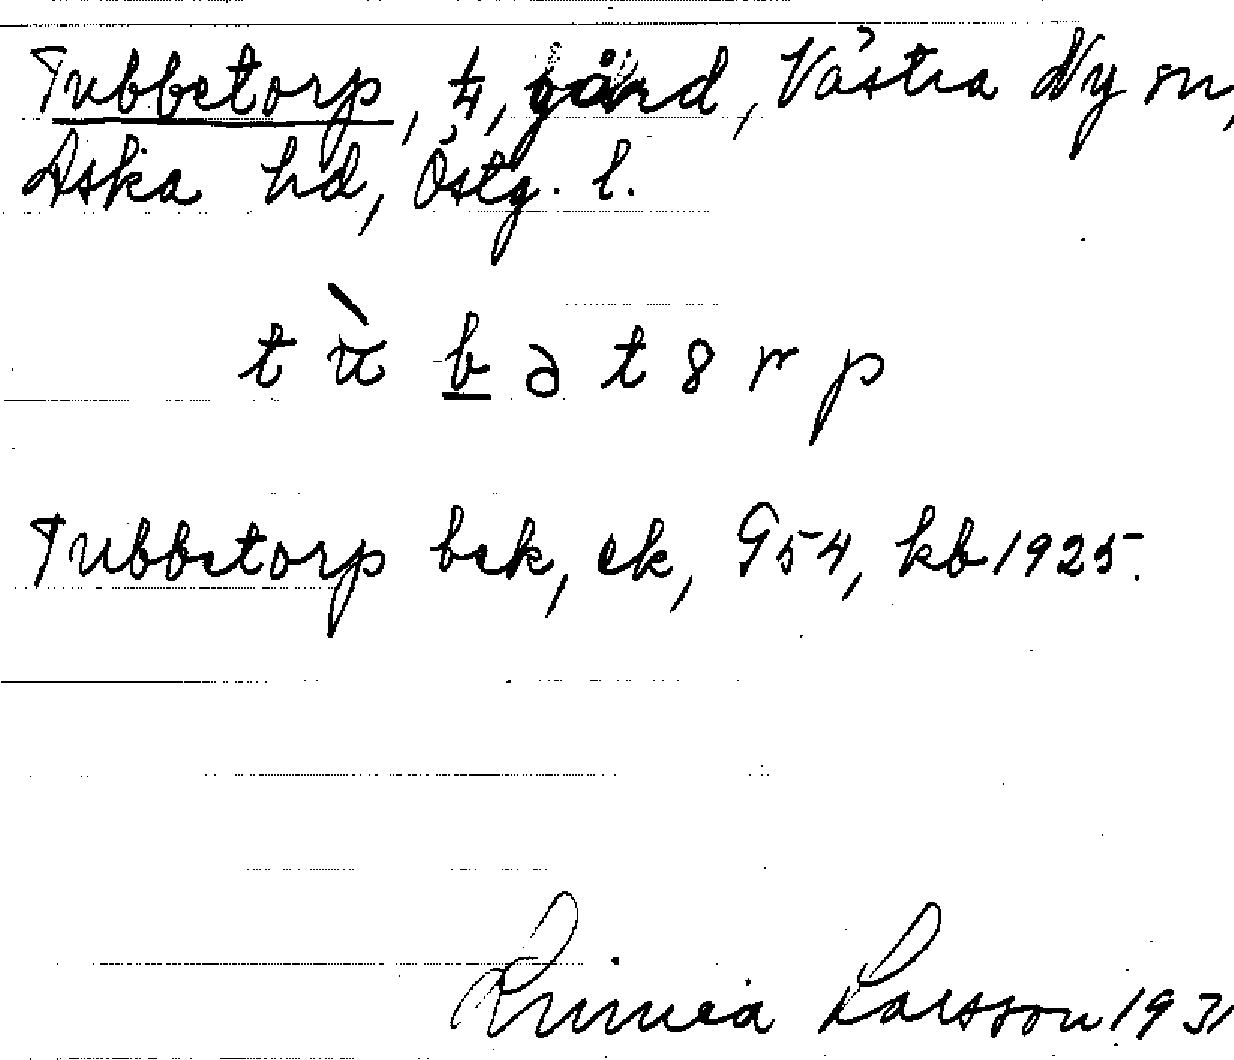 Tubbetorp, 1/4, gård, Västra Ny sn,
Aska hd, Östg. l.
t ù b ə t 8 r p
Tubbetorp bek, ek, G54, kb 1925.
Linnea Larsson 1931